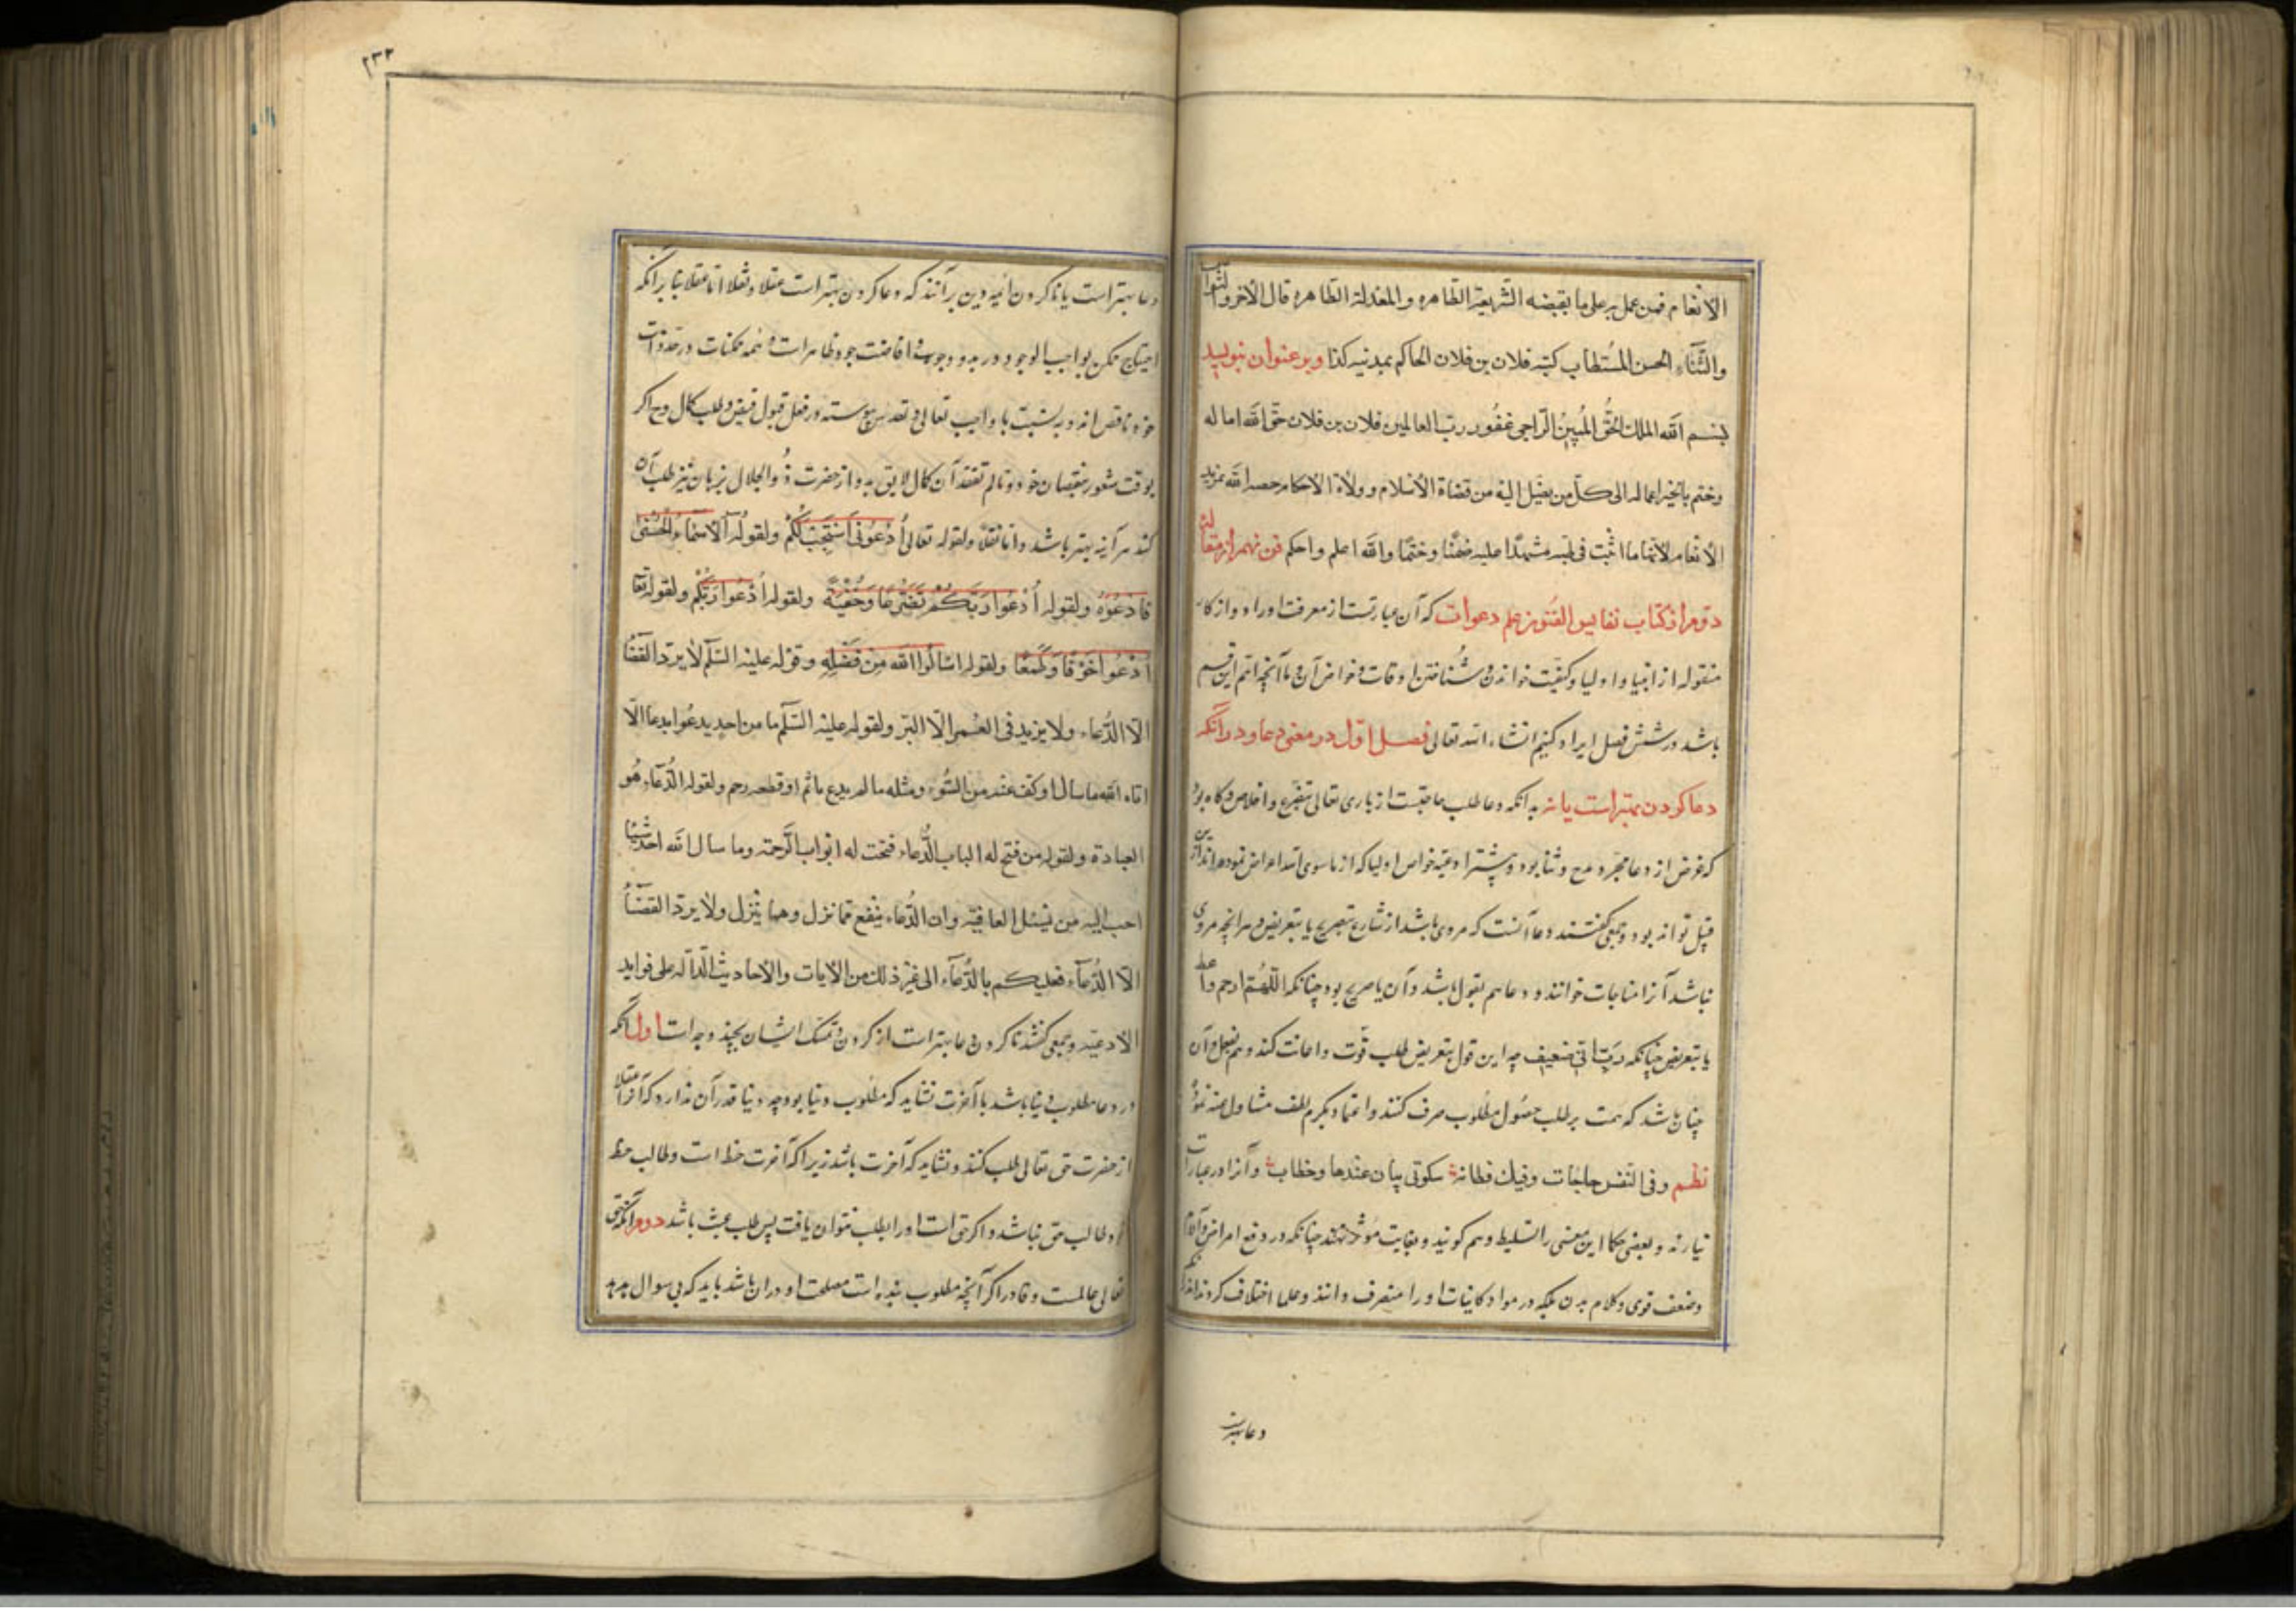 الانعام فمن عمل بر علی ما یقبضه الشریعة الطاهره والمعدلة الظاهره قال الاخر والثواب
والثناء الحسن المستطاب کتبه فلان بن فلان الحاکم بمدینه کذا و بر عنوان بنویسد
بسم الله الملک الحق المبین الراجی غفور رب العالمین فلان بن فلان حقق الله اماله
وختم بالخیر اعماله الی کل من یصل الیه من قضاة الاسلام و ولاة الاحکام خصه الله بمزید
الانعام لاتمام ما اثبت فی مشهدا علیه ضمنا وختما والله اعلم واحکم فن نهم از مقاله
دوم از کتاب نفایس الفنون علم دعوات که آن عبارتست از معرفت اوراد و اذکار
منقوله از انبیا و اولیا و کیفیت خواندن و شناختن اوقات و خواص آن و ما آنچه اهم این قسم
باشد در شش فصل ایراد کنیم انشاء الله تعالی فصل اول در معنی دعا و در آنکه
دعا کردن بهتر است یا نه بدانکه دعا طلب حاجتست از باری تعالی بتضرع و اخلاص و گاه بود
که غرض از دعا مجرد مدح و ثنا بود و بیشتر ادعیه خواص اولیا که از ما سوی الله اعراض نموده اند ازین
قبیل تواند بود و جمعی گفتند دعا آنست که مروی باشد از شارع بتصریح یا بتعریض و هر آنچه مروی
نباشد آنرا مناجات خوانند و دعا هم بقول باشد و آن یا صریح بود چنانکه اللهم ارحم و اعط
یا بتعریض چنانکه رب انی ضعیف چه این قول بتعریض طلب قوت و اعانت کند و هم بفعل و آن
چنان باشد که همت بر طلب حصول مطلوب صرف کنند و اعتماد بکرم لطف مشاول عنه نمود
نظم وفی النفس حاجات وفیک فطانة سکوتی بیان عندها وخطاب و آنرا در عبارات
نیارند و بعضی حکما این معنی را تسلیط وهم گویند و بغایت مؤثر نهند چنانکه در دفع امراض و آلام
وضعف قوی و کلام بدن بلکه در مواد کاینات او را متصرف دانند و علما اختلاف کردند اندر آنکه
دعا بهترست
۲۳۲
دعا بهتر است یا ناکردن ائمه دین بر آنند که دعا کردن بهتر است عقلا و نقلا اما عقلا بنا بر آنکه
احتیاج ممکن بواجب الوجود در بدو وجود و افاضت جود ظاهر است و همه ممکنات در حد ذات
خود ناقص اند و بنسبت با واجب تعالی و تقدس پیوسته در فعل قبول فیض و طلب کمال و هر اگر
بوقت شعور بنقصان خود و تالم تفقد آن کمال لایق بدو از حضرت ذو الجلال بزبان نیز طلب آن
کند هر آینه بهتر باشد و اما نقلا ولقوله تعالی أدعونی أستجب لکم ولقوله الاسماء الحسنی
فادعوه ولقوله أدعوا ربکم تضرعا وخفیة ولقوله أدعوا ربکم ولقوله تعا
أدعوا خوفا وطمعا ولقوله اسألوا الله من فضله وقوله علیه السلم لا یرد القضا
الا الدعاء ولا یزید فی العمر الا البر ولقوله علیه السلم ما من احد یدعوا بدعا الا
اتاه الله ما سال او کف عنه من السوء ومثله ما لم یدع ماثم او قطعه رحم ولقوله الدعاء هو
العبادة ولقوله من فتح له الباب الدعاء فتحت له ابواب الرحمة وما سال الله احد شیئا
احب الیه من یسئل العافیة وان الدعاء ینفع مما نزل ومما ینزل ولا یرد القضاء
الا الدعاء فعلیکم بالدعاء الی غیر ذلک من الایات والاحادیث الدالة علی فواید
الادعیه و جمعی گفتند ناکردن دعا بهتر است از کردن و تمسک ایشان بچند وجه است اول آنکه
در دعا مطلوب دنیا باشد یا آخرت نشاید که مطلوب دنیا بود چه دنیا قدر آن ندارد که آنرا عقلا
از حضرت حق تعالی طلب کنند و نشاید که آخرت باشد زیرا که آخرت حظ است و طالب حظ
طالب حق نباشد و اگر حق است او را بطلب نتوان یافت پس طلب عبث باشد دوم آنکه حق
تعالی عالمست و قادر اگر آنچه مطلوب بنده است مصلحت او در آن باشد باید که بی سوال بدهد